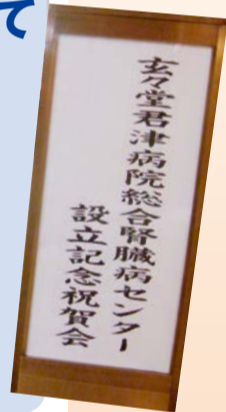 て
玄々堂君津病院総合腎臓病センター
設立記念祝賀会